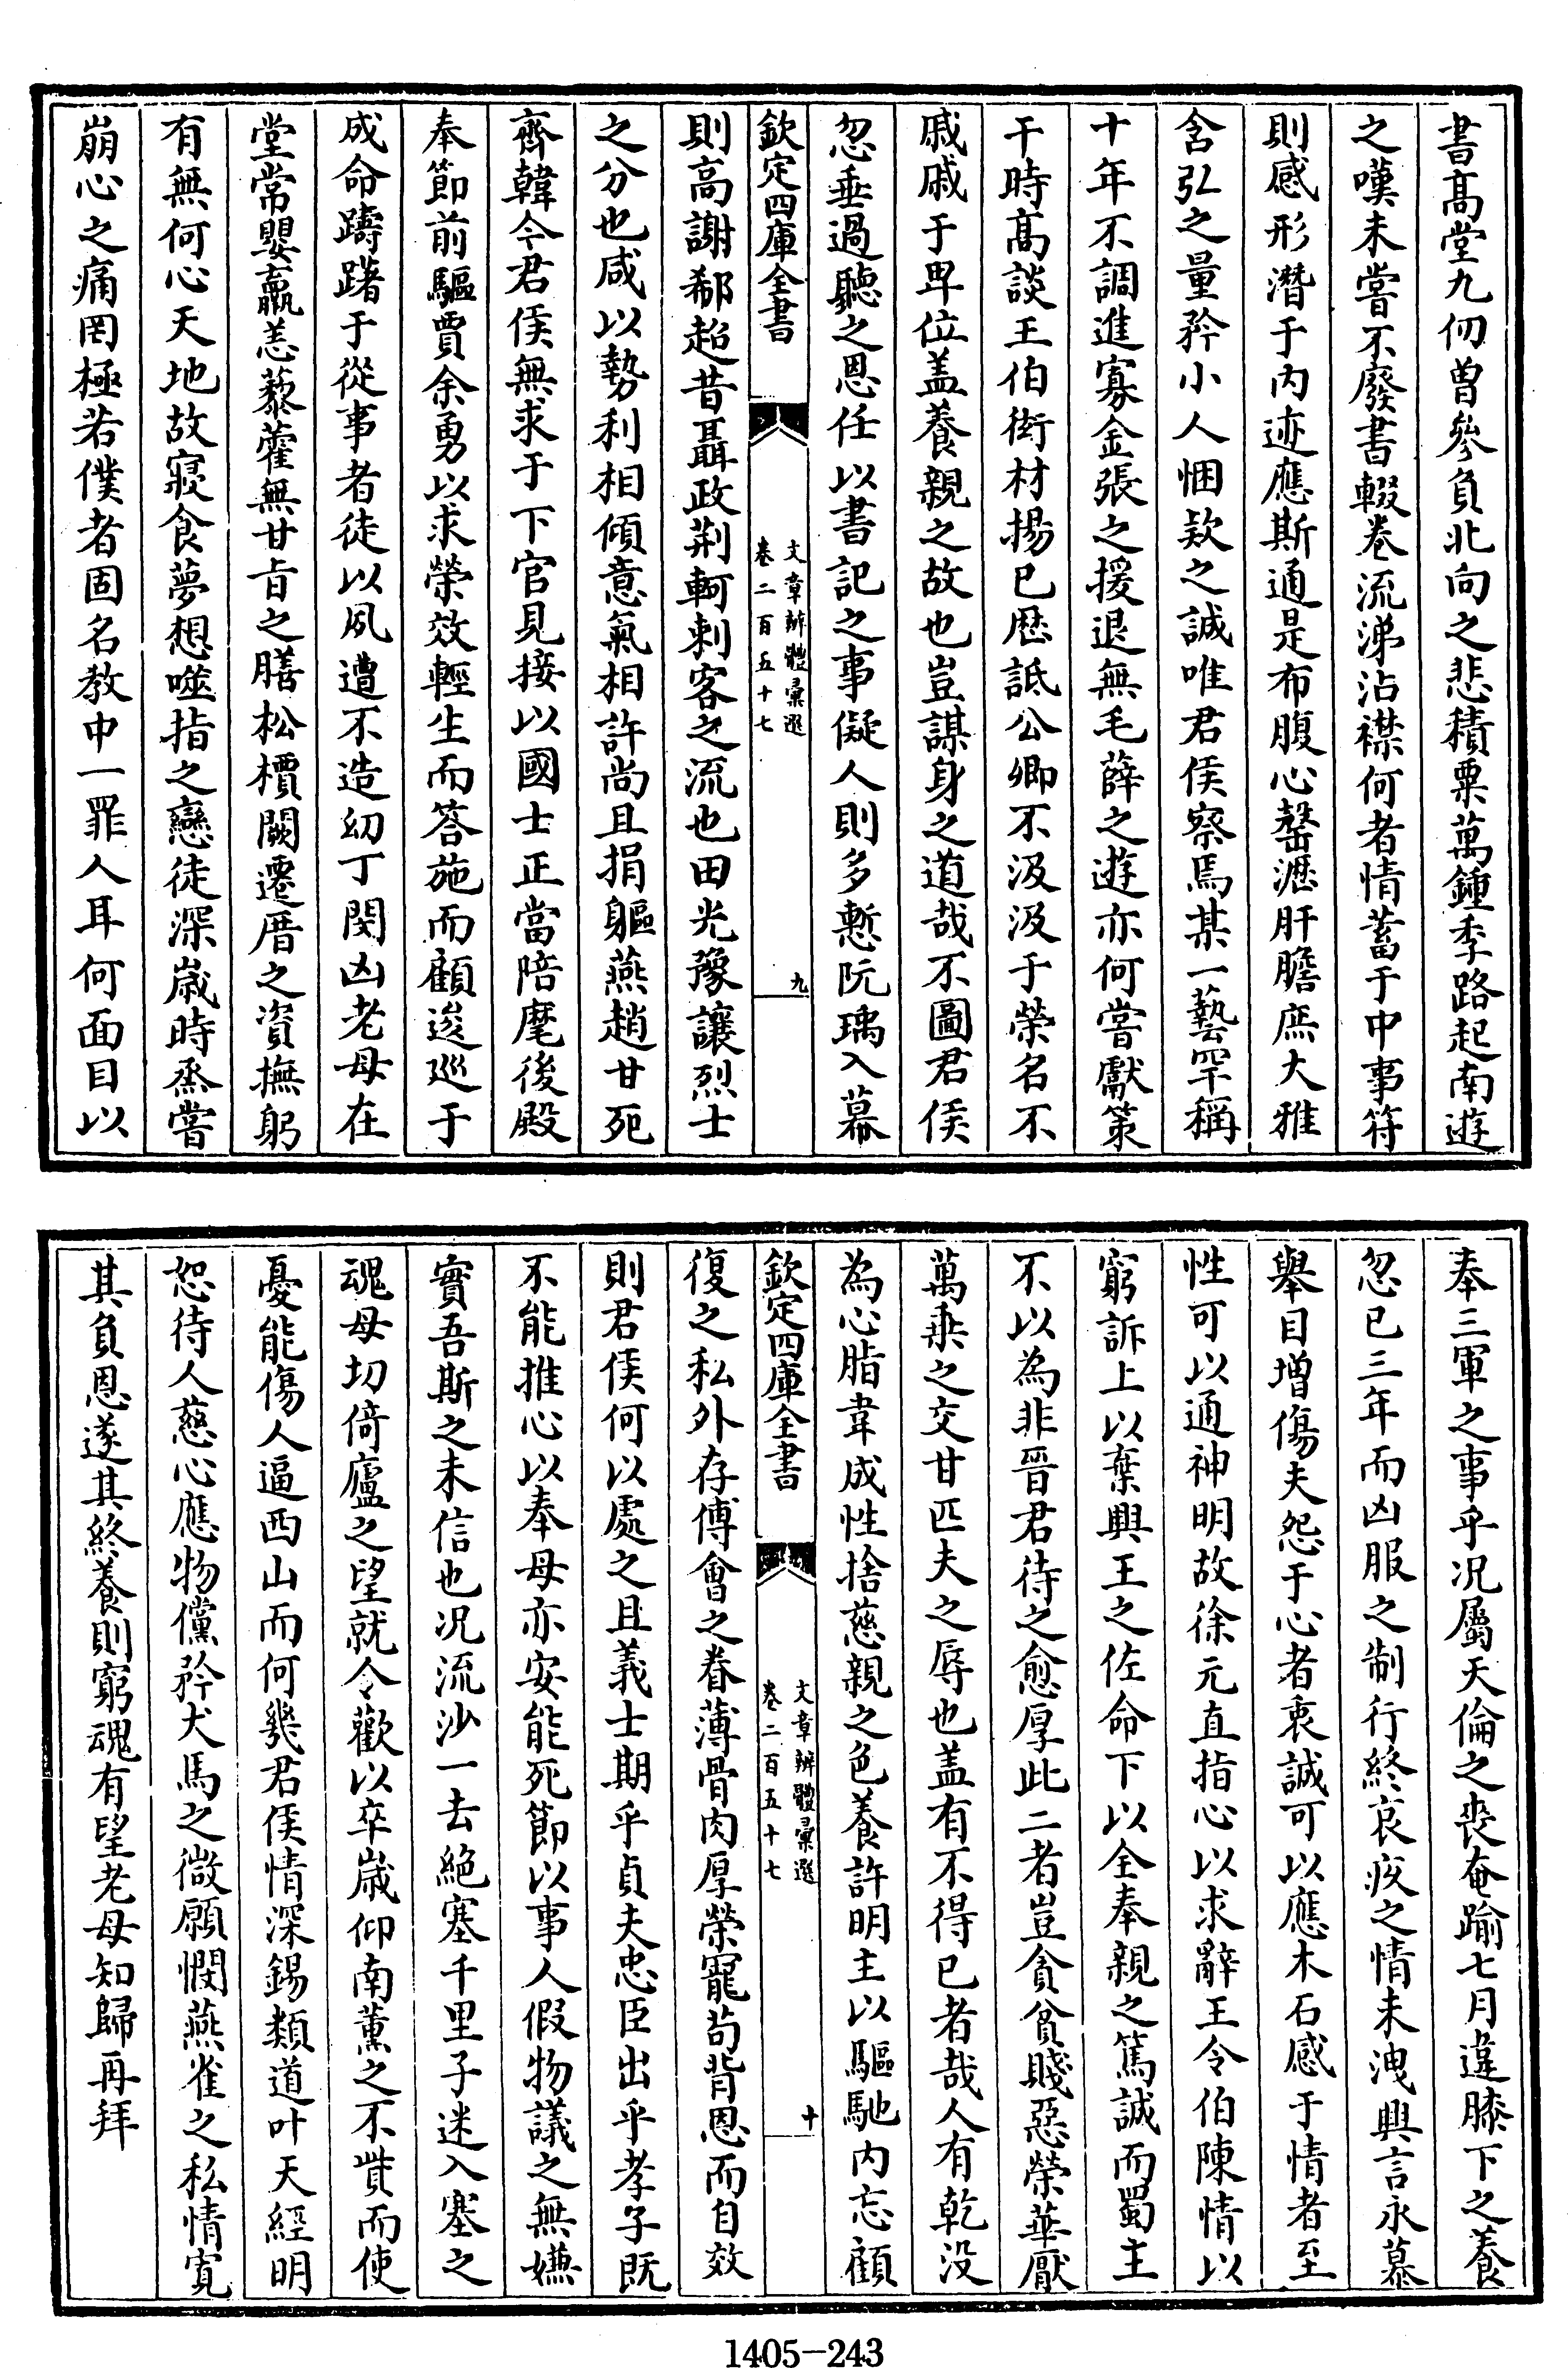 書髙堂九仞曽參負北向之悲積粟萬鍾季路起南遊
之嘆未嘗不廢書輟巻流涕沾襟何者情蓄于中事符
則感形潛于内迹應斯通是布腹心罄瀝肝膽庶大雅
含弘之量矜小人悃欵之誠唯君侯察焉某一藝罕稱
十年不調進寡金張之援退無毛薛之遊亦何嘗獻策
干時髙談王伯衒材揚己厯詆公卿不汲汲于榮名不
戚戚于卑位盖養親之故也豈謀身之道哉不圖君侯
忽垂過聽之恩任以書記之事儗人則多慙阮瑀入幕
欽定四庫全書
文章辨體彚選
卷二百五十七
九
則高謝郗超昔聶政荆軻刺客之流也田光豫讓烈士
之分也咸以勢利相傾意氣相許尚且捐軀燕趙甘死
齊韓今君侯無求于下官見接以國士正當陪麾後殿
奉節前驅賈余勇以求榮效輕生而答施而顧逡巡于
成命躊躇于從事者徒以夙遭不造幼丁閔凶老母在
堂常嬰羸恙藜藿無甘旨之膳松檟闕遷厝之資撫躬
有無何心天地故寢食夢想噬指之戀徒深嵗時烝嘗
崩心之痛罔極若僕者固名教中一罪人耳何面目以
奉三軍之事乎况屬天倫之喪奄踰七月違膝下之養
忽已三年而凶服之制行終哀疚之情未洩興言永慕
舉目増傷夫怨于心者衷誠可以應木石感于情者至
性可以通神明故徐元直指心以求辭王令伯陳情以
窮訴上以棄興王之佐命下以全奉親之篤誠而蜀主
不以為非晉君待之愈厚此二者豈貪貧賤惡榮華厭
萬乘之交甘匹夫之辱也盖有不得已者哉人有乾没
為心脂韋成性捨慈親之色養許明主以驅馳内忘顧
欽定四庫全書
文章辨體彚選
卷二百五十七
十
復之私外存傅會之眷薄骨肉厚榮寵茍背恩而自效
則君侯何以處之且義士期乎貞夫忠臣出乎孝子既
不能推心以奉母亦安能死節以事人假物議之無嫌
實吾斯之未信也况流沙一去絶塞千里子迷入塞之
魂母切倚廬之望就令歡以卒嵗仰南薰之不貲而使
憂能傷人逼西山而何幾君侯情深錫類道叶天經明
恕待人慈心應物儻矜犬馬之微願憫燕雀之私情寛
其負恩遂其終養則窮魂有望老母知歸再拜
1405-243